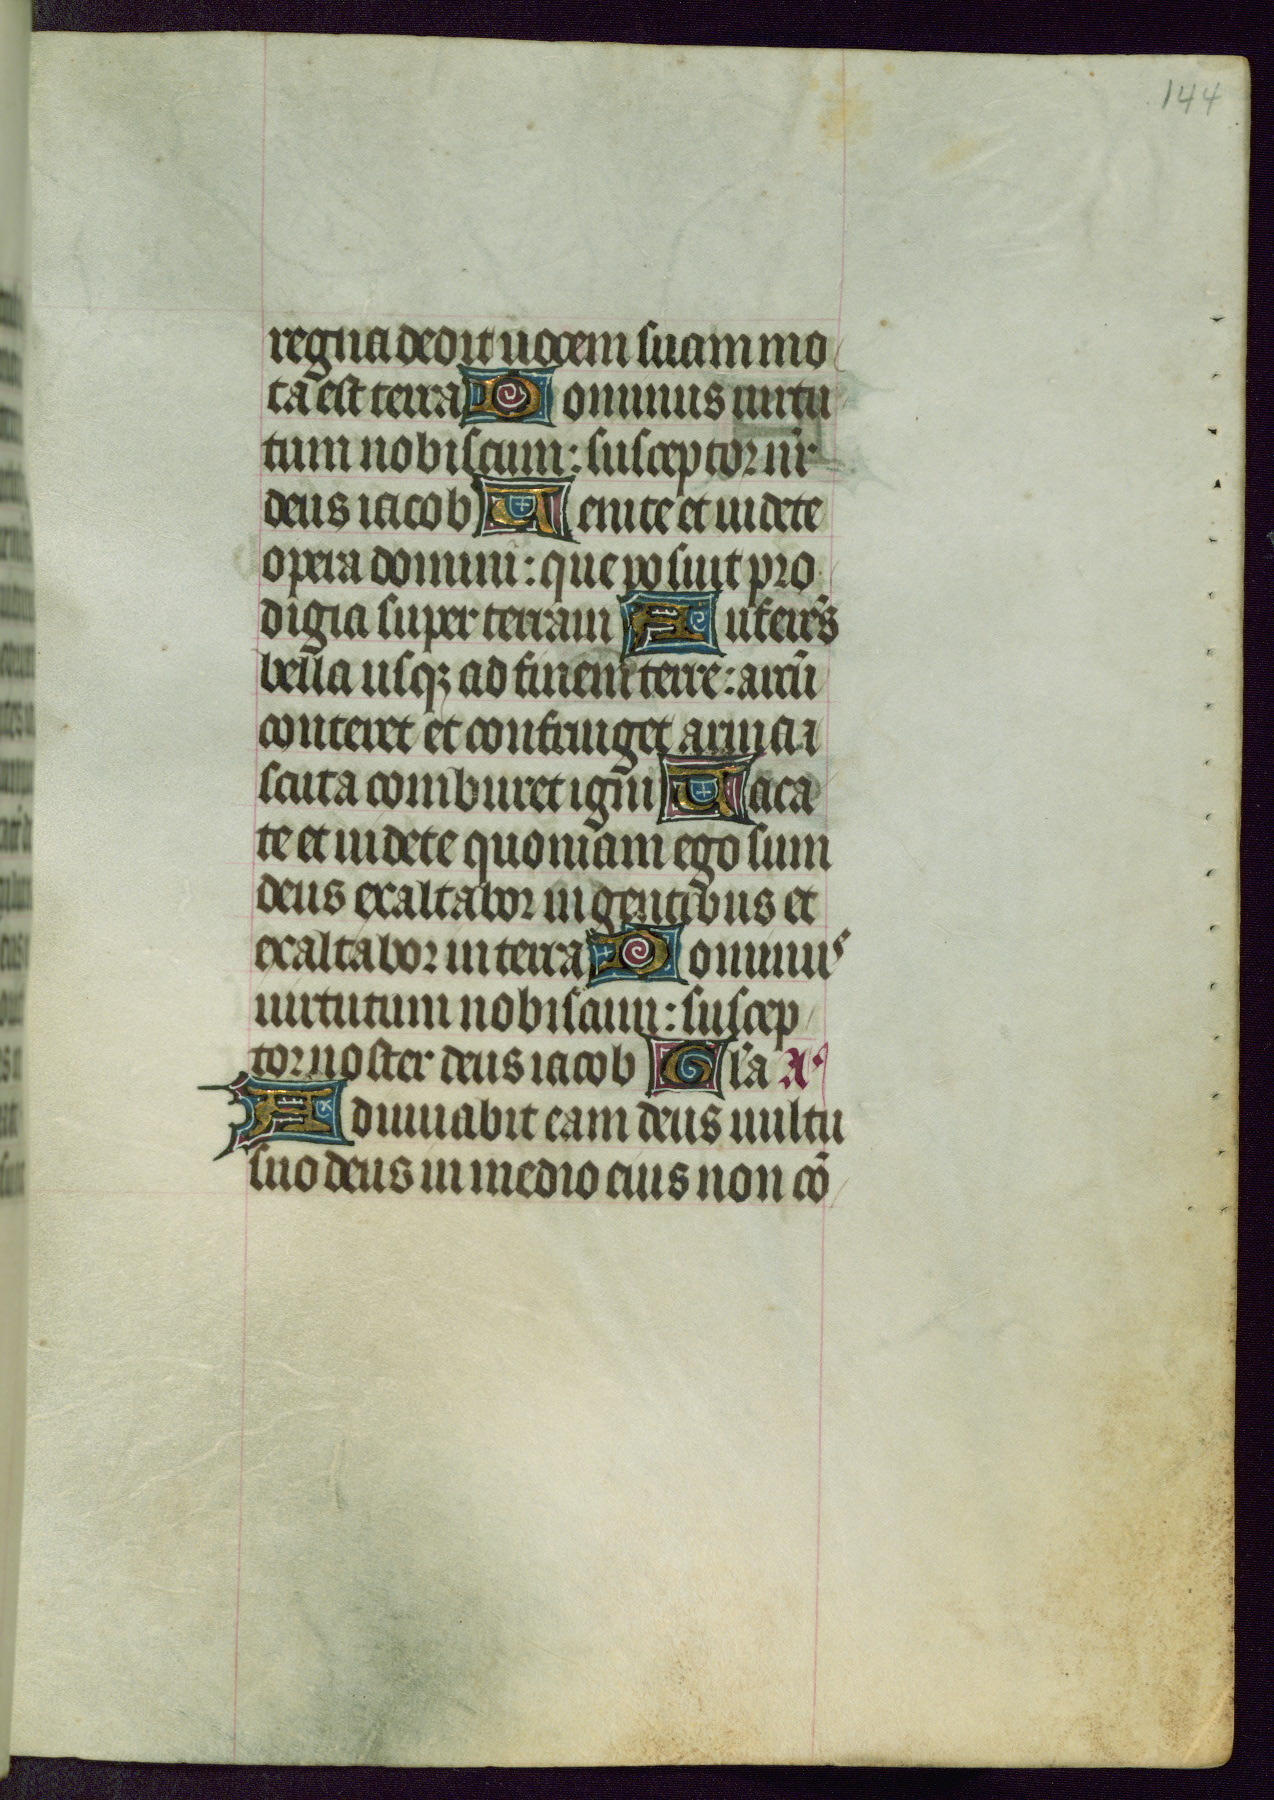 144
regna dedit uocem suam mo
ta est terra Dominus uirtu
tum nobiscum: susceptor nr̄
deus iacob Uenite et uidete
opera domini: que posuit pro
digia super terram Auferēs
bella usqꝫ ad finem terre: arcū
conteret et confringet arma ⁊
scuta comburet igni Uaca
te et uidete quoniam ego sum
deus exaltabor in gentibus et
exaltabor in terra Dominus
uirtutum nobiscum: suscep
tor noster deus iacob Gl̄a A
Adiuuabit eam deus uultu
suo deus in medio eius non cō